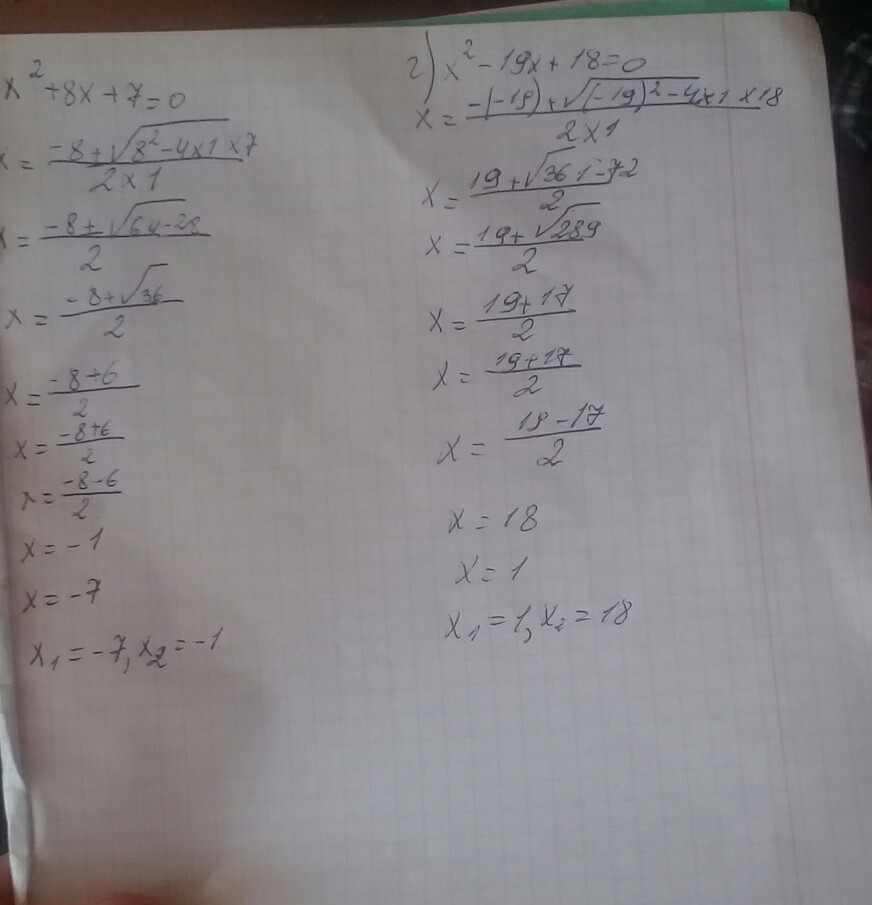 x² + 8x + 7 = 0
x = (-8 + √(8² - 4x1x7)) / (2x1)
x = (-8 ± √(64-28)) / 2
x = (-8 + √36) / 2
x = (-8 + 6) / 2
x = (-8+6) / 2
x = (-8-6) / 2
x = -1
x = -7
x₁ = -7, x₂ = -1
2) x² - 19x + 18 = 0
x = (-(-19) + √((-19)² - 4x1x18)) / (2x1)
x = (19 + √(361-72)) / 2
x = (19 + √289) / 2
x = (19+17) / 2
x = (19+17) / 2
x = (19-17) / 2
x = 18
x = 1
x₁ = 1, x₂ = 18